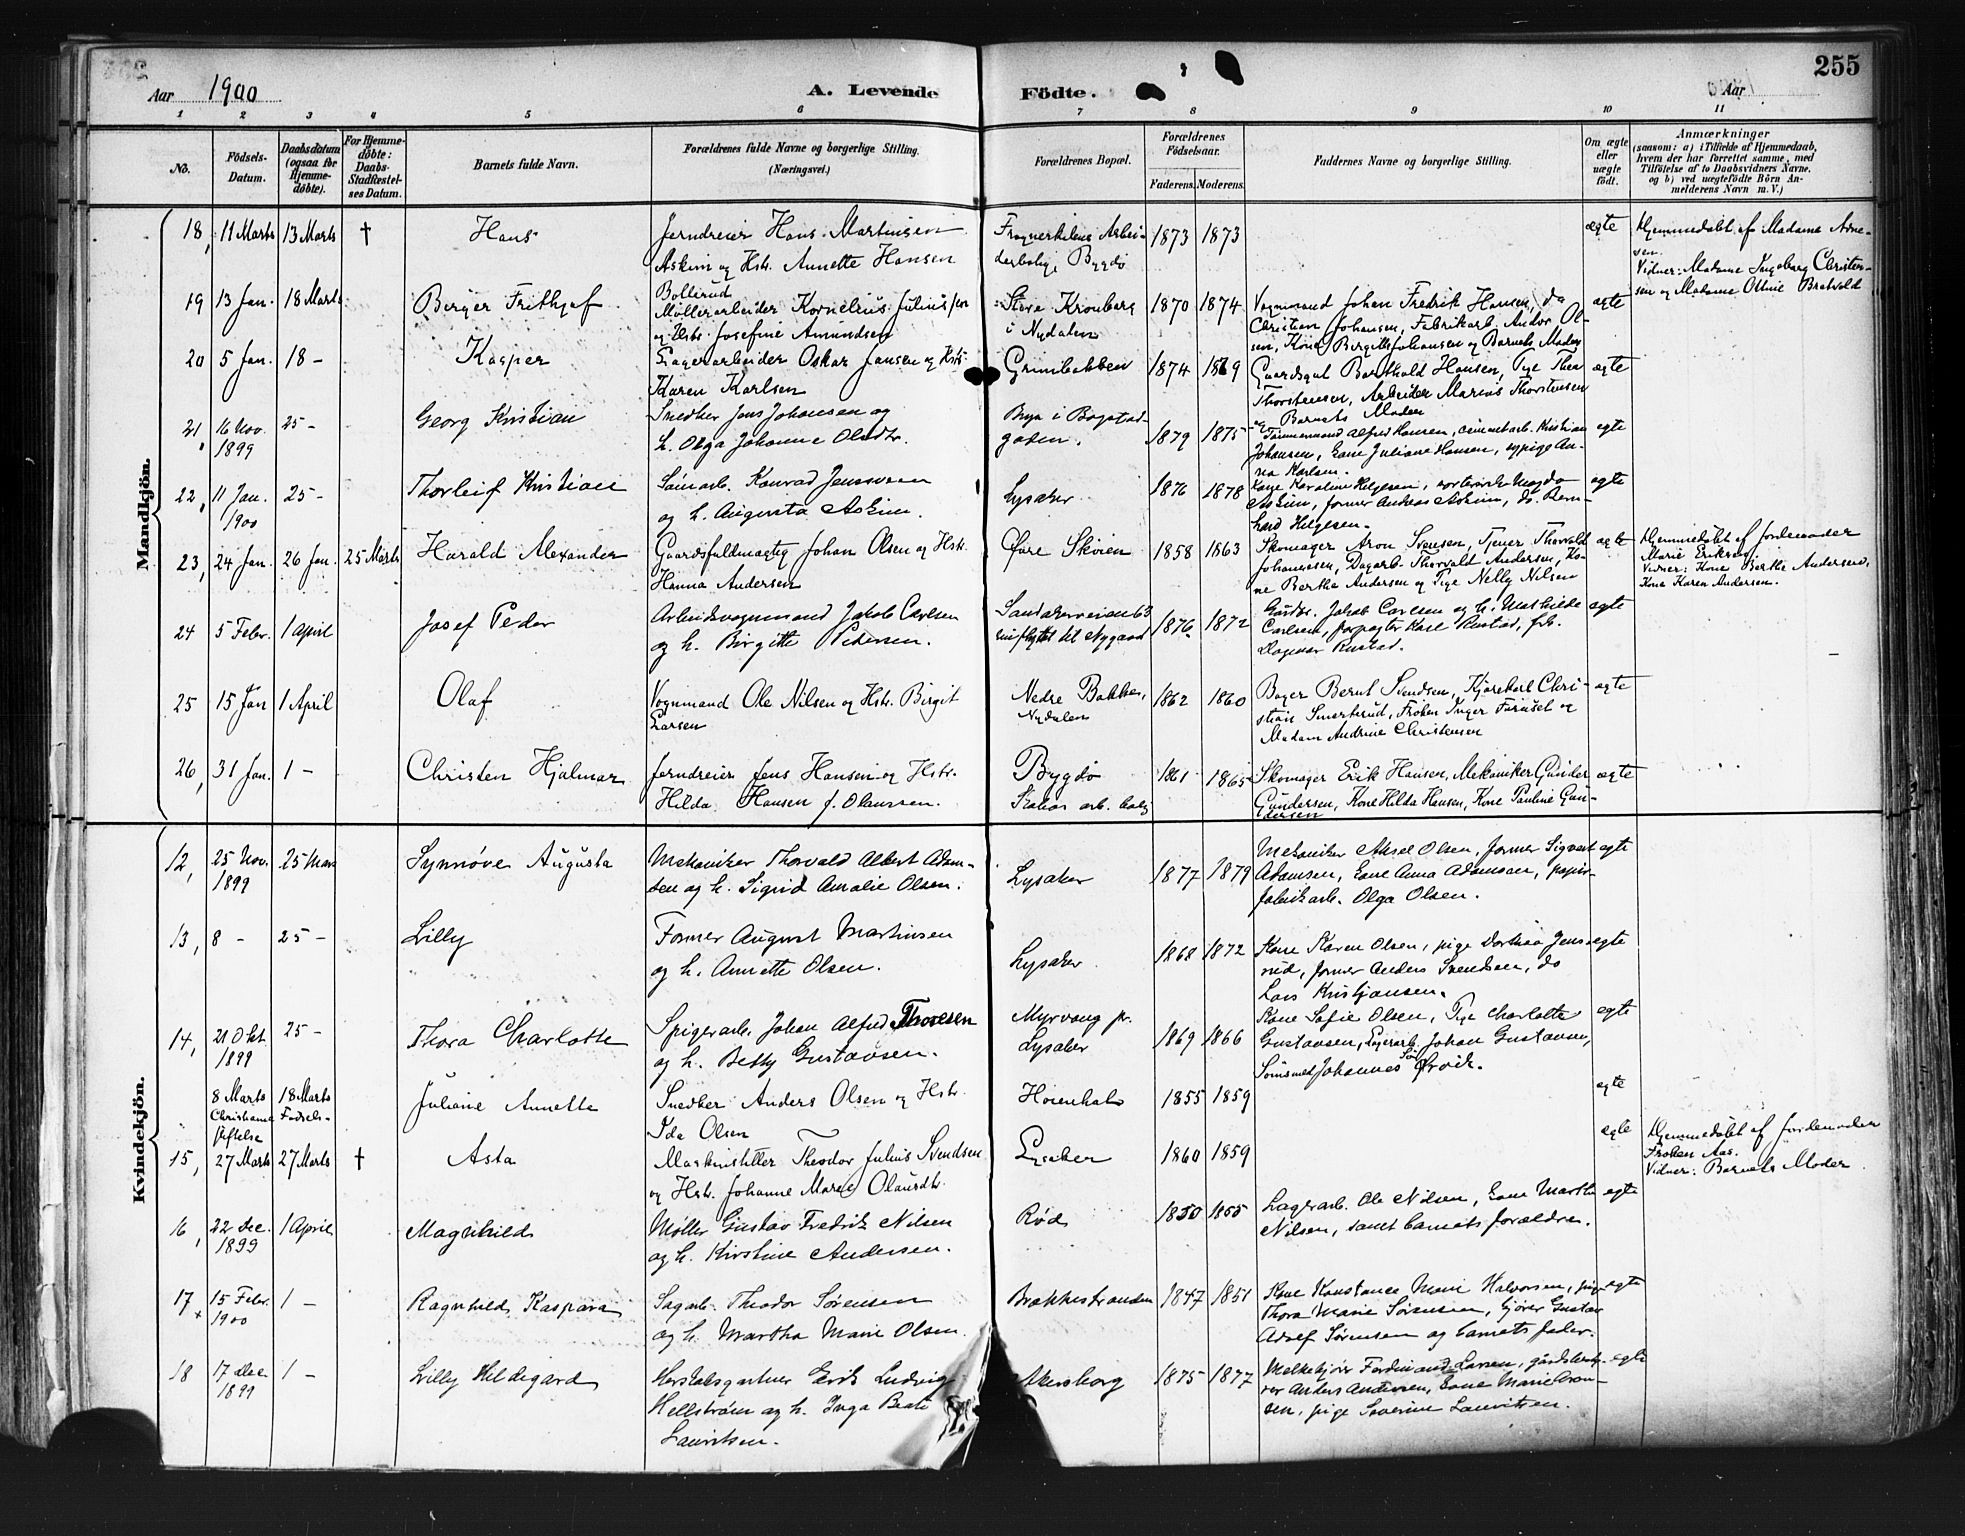 255
Aar 1900
A. Levende Födte.
Aar
1 2 3 4 5 6 7 8 9 10 11
No.
Födsels-Datum.
Daabsdatum (ogsaa for Hjemme-döbte).
For Hjemme-döbte: Daabs-Stadfæstel-ses Datum.
Barnets fulde Navn.
Forældrenes fulde Navne og borgerlige Stilling. (Næringsvei.)
Forældrenes Bopæl.
Forældrenes Födselsaar.
Faderens. Moderens.
Faddernes Navne og borgerlige Stilling.
Om ægte eller uægte födt.
Anmærkninger
(saasom: a) i Tilfælde af Hjemmedaab, hvem der har forrettet samme, med Tilföielse af to Daabsvidners Navne, og b) ved uægtefödte Börn An-melderens Navn m. V.)
Mandkjön.
18, 11 Marts 13 Marts † Hans Jerndreier Hans Martinsen
Askim og Hstr. Annette Hansen
Frognerkilens Arbei-
derbolig Bygdø 1873 1873 ægte
Hjemmedøbt af Madame Arne-
sen.
Vidner: Madame Ingeborg Christen-
sen og Madame Othie Bratvold
19 13 Jan. 18 Marts Birger Frithjof Bollerud
Møllerarbeider Kornelius Julius/sen
og Hstr. Josefine Amundsen
Store Kronborg
i Nydalen 1870 1874
Vognmand Johan Fredrik Hansen, do
Christian Johansen, Fabrikarb. Andor Ol-
sen, Kone Bergitte Johansen og Barnets Moder ægte
20 5 Jan. 18 - Kasper Lagerarbeider Oskar Jansen og Hstr.
Karen Karlsen
Grimbakken 1874 1869
Gaardsgut Barthold Hansen, Pige Thea
Thorstensen, Arbeider Marius Thorstensen
og Barnets Moder ægte
21 16 Nov. 1899 25 - Georg Kristian Snedker Jens Johansen og
h. Olga Johanne Olsdtr.
Myra i Bogstad-
gaden. 1879 1875
Tømmermand Alfred Hansen, cementarb. Kristian
Johansen, Kone Juliane Hansen, sypige An-
na Karlsen. ægte
22, 11 Jan. 1900 25 - Thorleif Kristian
og h. Augusta Askim.
Lysaker 1876 1878
Kone Karoline Helgesen, Magda
Askim, former Andreas Askim, do. Bern-
hard Helgesen. ægte
23, 24 Jan. 26 Jan. 25 Marts Harald Alexander Gaardsfuldmægtig Johan Olsen og Hstr.
Hanna Andersen
Øvre Skøien 1858 1863
Skomager Aron Svensen, Tjener Thorvald
Johannesen, Dagarb. Thorvald Andersen, Ko-
ne Bertha Andersen og Pige Nelly Nilsen ægte
Hjemmedøbt af Jordemoder
Marie Eriksen.
Vidner: Kone Berthe Andersen,
Kone Karen Andersen.
24 5 Febr. 1 April Josef Peder Arbeidsvognmand Jakob Carlsen
og h. Birgitte Pedersen.
Sandakerveien 63
indflyttet til Nygaard 1876 1872
Gaardbr. Jakob Carlsen og h. Mathilde
Carlsen, forpagter Karl Rustad, frk.
Dagmar Rustad. ægte
25 15 Jan 1 April Olaf Vognmand Ole Nilsen og Hstr. Birgit
Larsen
Nedre Bakken,
Nydalen 1862 1860
Bager Bernt Svendsen, Kjørekarl Chri-
stian Smerterud, Frøken Inger Furuset og
Madam Andrine Christensen ægte
26, 31 Jan. 1 - Christen Hjalmar Jerndreier Jens Hansen og Hstr.
Hilda Hansen f. Olaussen.
Bygdø
arb. bolig 1861 1865
Skomager Erik Hansen, Mekaniker Gunder
Gundersen, Kone Hilda Hansen, Kone Pauline Gun-
dersen ægte
Kvindekjön.
12, 25 Nov. 1899 25 Mars Synnøve Augusta Mekaniker Thorvald Albert Adam-
sen og h. Sigrid Amalie Olsen.
Lysaker 1877 1879
Mekaniker Aksel Olsen, former Sigvart
Adamsen, Kone Anna Adamsen, papir-
fabrikarb. Olga Olsen. ægte
13, 8 - 25 - Lilly Former August Martinsen
og h. Annette Olsen.
Lysaker 1868 1872
Kone Karen Olsen, pige Dorthea Jens-
rud, former Anders Svendsen, do
Lars Kristiansen. ægte
14, 21 Okt. 1899 25 - Thora Charlotte Spigerarb. Johan Alfred Thoresen
og h. Betty Gustavsen.
Myrvang pr.
Lysaker 1869 1866
Kone Sofie Olsen, Pige Charlotte
Gustavsen, Lagerarb. Johan Gustavsen,
Johannes ægte
8 Marts 18 Marts
Christiania Fødsels-
stiftelse Juliane Annette Snedker Anders Olsen og Hstr.
Ida Olsen
1855 1859 ægte
15, 27 Marts 27 Marts † Asta Maskinstiller Theodor Julius Svendsen
og Hstr. Johanne Marie Olausdtr.
Lysaker 1860 1859 ægte
Hjemmedøbt af Jordemoder
Frøken Aas.
Vidner: Barnets Moder
16, 22 dec. 1899 1 April Magnhild Møller Gustav Fredrik Nilsen
og h. Kirstine Andersen.
Rød 1850 1855
Lagerarb. Ole Nilsen, Kone Marthe
Nilsen, samt barnets forældre. ægte
17 15 Febr. 1900 1 - Ragnhild Kaspara Sagarb. Theodor Sørensen
og h. Martha Marie Olsen.
Brakkestranden 1847 1851
Kone Konstance Marie Halvorsen, pige
Thora Marie Sørensen, kjører Gustav
Adolf Sørensen og barnets fader. ægte
18 17 Dec. 1899 1 - Lilly Hildegard Herskabsgartner Erik Ludvig
Hellstrøm og h. Inga Beate
Lauritsen.
Akersborg 1875 1877
Melkekjører Ferdinand Larsen, gårdsbesty-
rer Anders Andersen, Kone Marie Aron-
sen, pige Severine Lauritsen. ægte